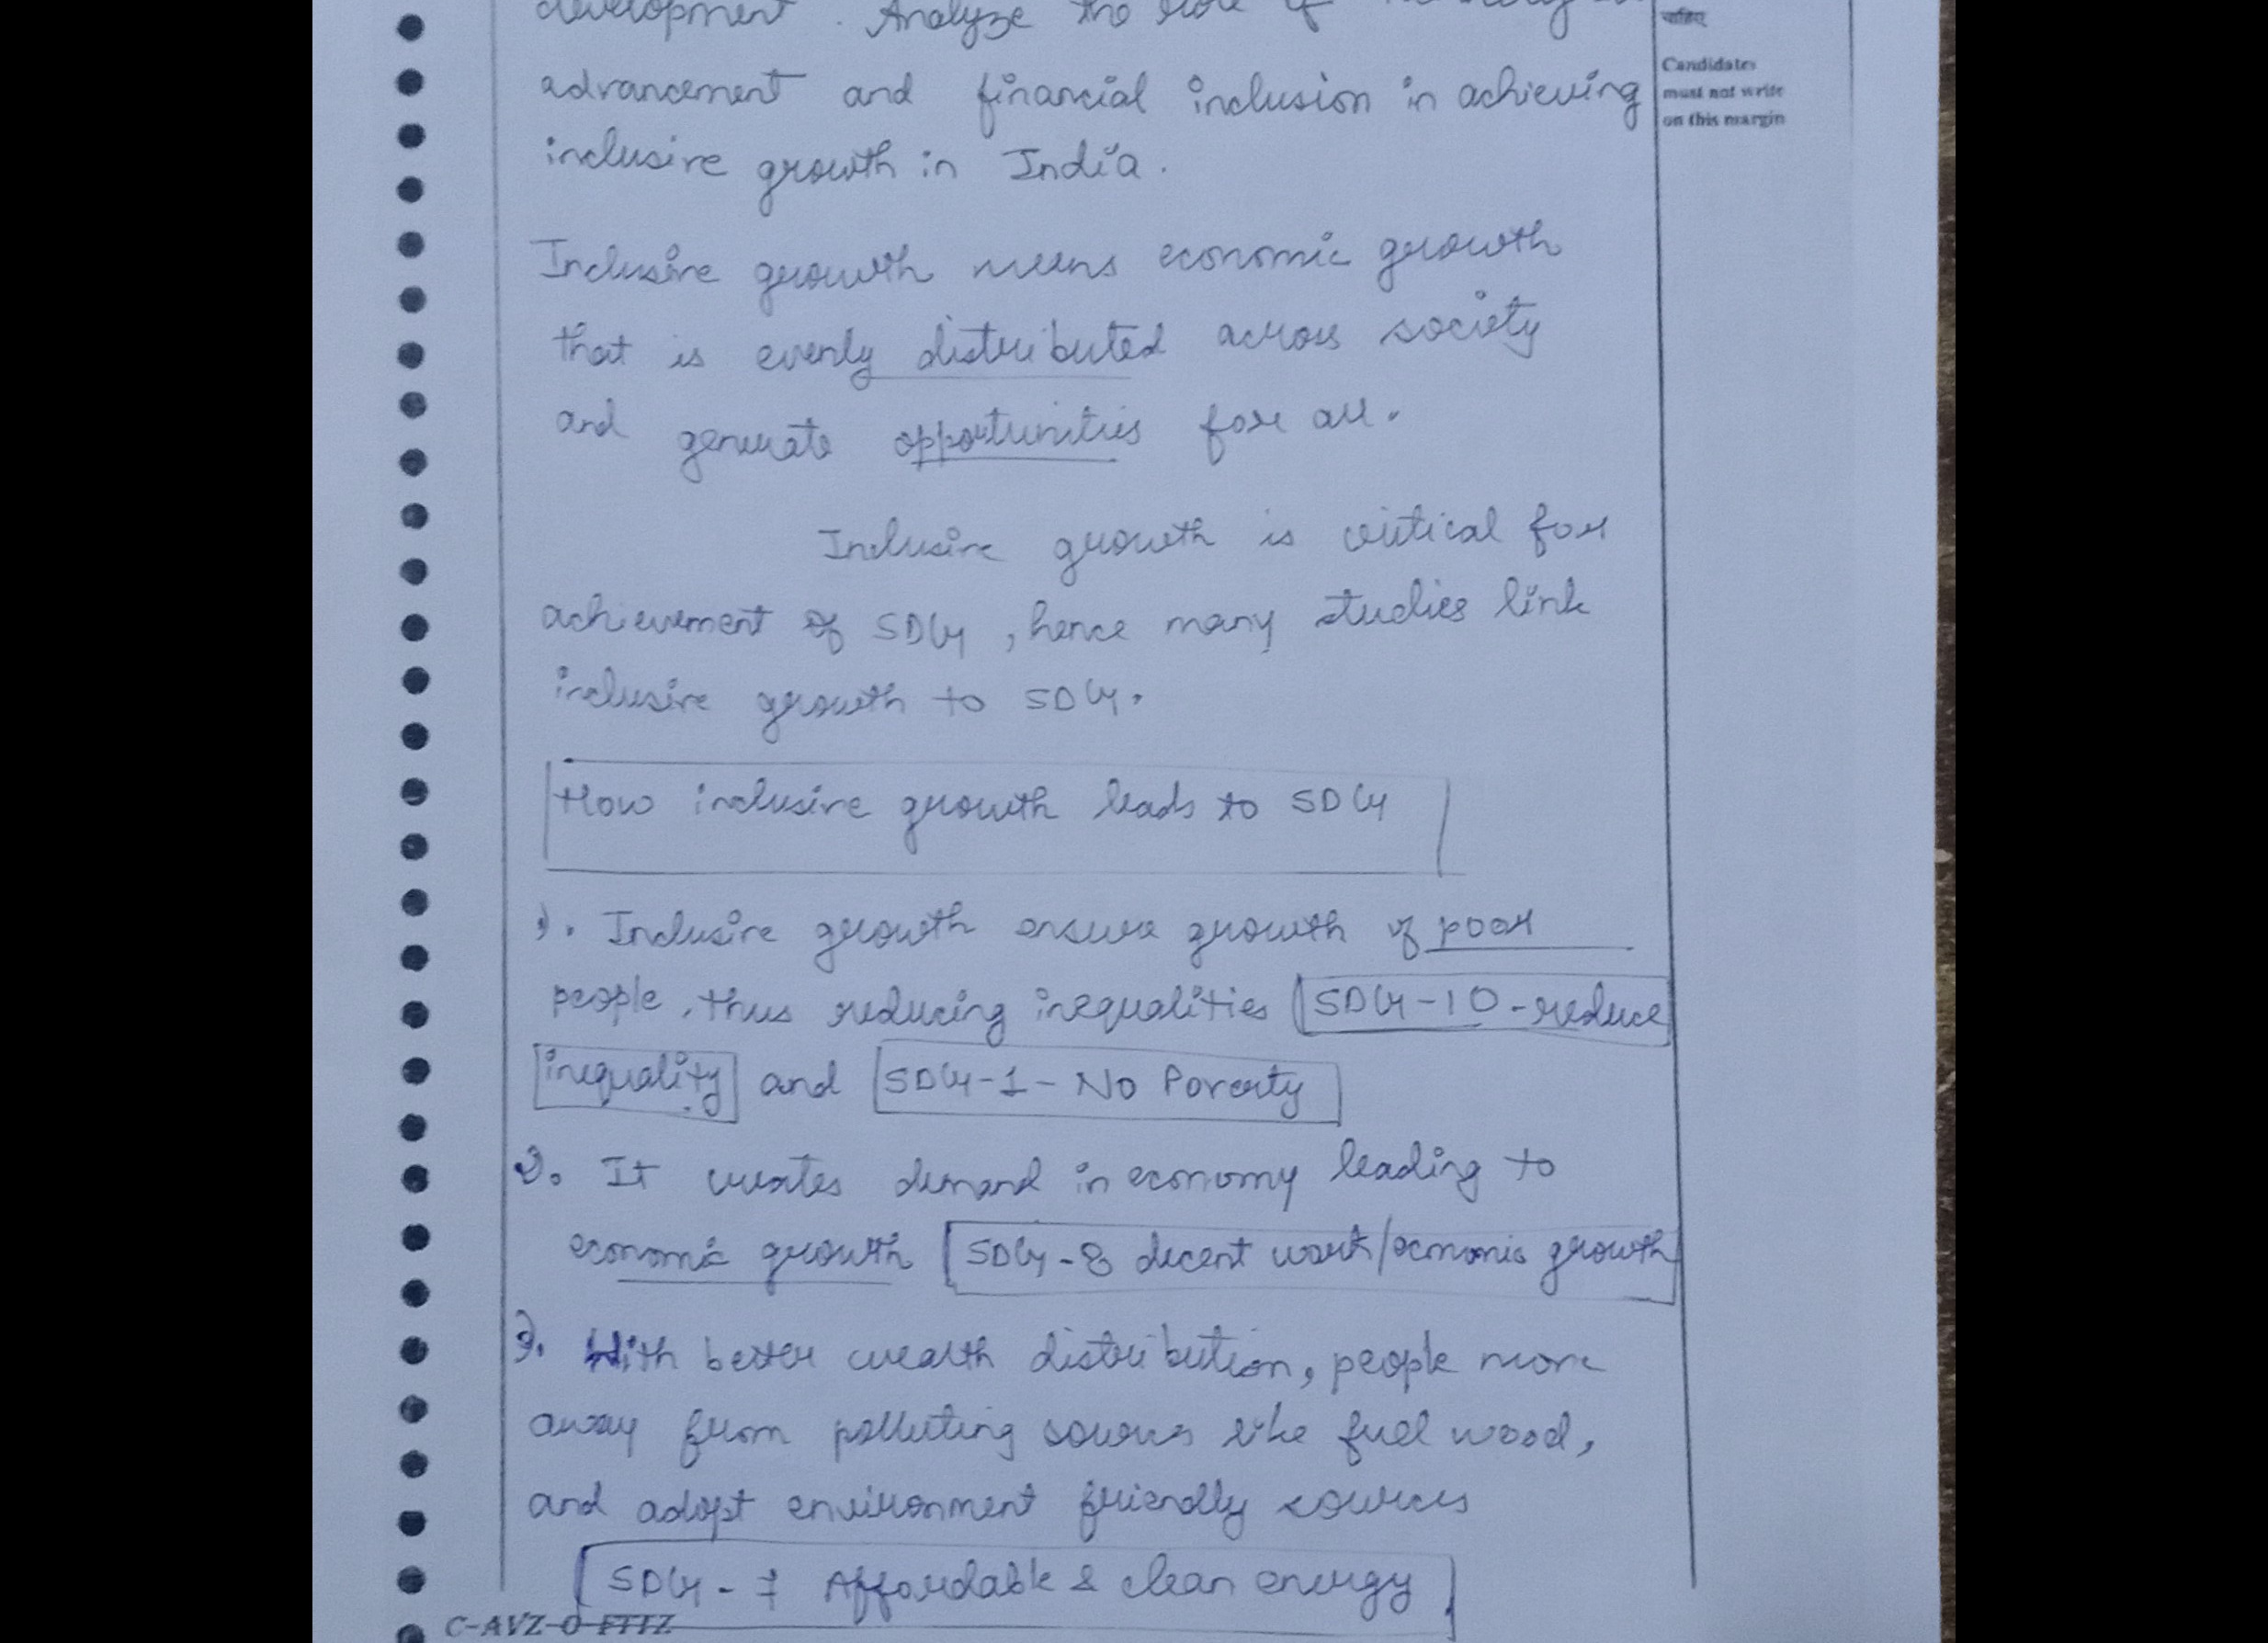 development. Analyze the role of
चाहिए
advancement and financial inclusion in achieving
inclusive growth in India.
Candidates
must not write
on this margin
Inclusive growth means economic growth
that is evenly distributed across society
and generate opportunities for all.
Inclusive growth is critical for
achievement of SDG, hence many studies link
inclusive growth to SDG.
How inclusive growth leads to SDG
1). Inclusive growth ensure growth of poor
people, thus reducing inequalities SDG-10-reduce
inequality and SDG-1-No Poverty
2). It creates demand in economy leading to
economic growth SDG-8 decent work/economic growth
3). With better wealth distribution, people move
away from polluting sources like fuel wood,
and adopt environment friendly sources
SDG-7 Affordable & clean energy
C-AVZ-O-FTTZ